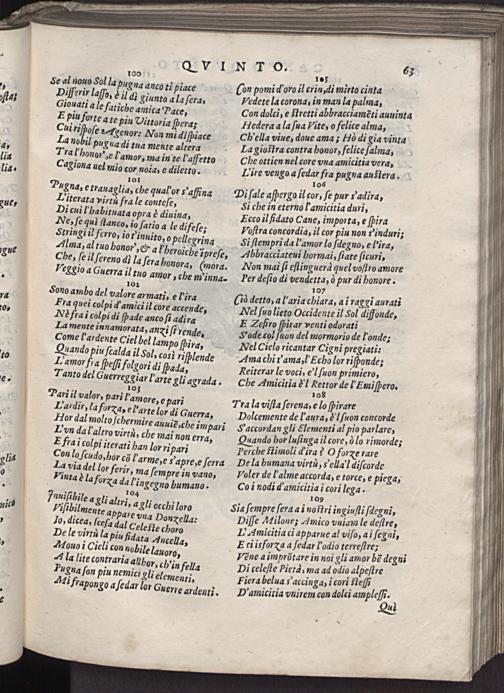 QVINTO. 63
100
Se al nouo Sol la pugna anco ti piace
Differir lasso, è il dì giunto a la sera,
Giouati a le fatiche amica Pace,
E piu forte a te piu Vittoria spera;
Cui rispose Agenor: Non mi dispiace
La nobil pugna di tua mente altera
Tra l'honor, e l'amor, ma in te l'affetto
Cagiona nel mio cor noia, e diletto.
101
Pugna, e trauaglia, che qual'or s'affina
L'iterata virtù fra le contese,
Di cui l'habituata opra è diuina,
Ne, se quì stanco, io satio a le difese;
Stringi il ferro, io t'inuito, o pellegrina
Alma, al tuo honor', & a l'heroiche iprese,
Che, se il sereno dì la sera honora, (mora.
Veggio a Guerra il tuo amor, che m'inna-
102
Sono ambo del valore armati, e l'ira
Fra quei colpi d'amici il core accende,
Nè fra i colpi di spade anco si adira
La mente innamorata, anzi si rende,
Come l'ardente Ciel bel lampo spira,
Quando piu scalda il Sol, così risplende
L'amor fra spessi folgori di spada,
Tanto del Guerreggiar l'arte gli agrada.
103
Pari il valor, pari l'amore, e pari
L'ardir, la forza, e l'arte lor di Guerra,
Hor dal molto schermire auuiē, che impari
L'vn da l'altro virtù, che mai non erra,
E fra i colpi iterati han lor ripari
Con lo scudo, hor cō l'arme, e s'apre, e serra
La via del lor ferir, ma sempre in vano,
Vinta è la forza da l'ingegno humano.
104
Inuisibile a gli altri, a gli occhi loro
Visibilmente apparue vna Donzella:
Io, dicea, scesa dal Celeste choro
De le virtù la piu fidata Ancella,
Mouo i Cieli con nobile lauoro,
A la lite contraria allhor, ch'in fella
Pugna son piu nemici gli elementi,
Mi frapongo a sedar lor Guerre ardenti.
105
Con pomi d'oro il crin, di mirto cinta
Vedete la corona, in man la palma,
Con dolci, e stretti abbracciamēti auuinta
Hedera a la sua Vite, o felice alma,
Ch'ella viue, doue ama; Hò di gia vinta
La giostra contra honor, felice salma,
Che ottien nel core vna amicitia vera,
L'ire vengo a sedar fra pugna austera.
106
Di sale aspergo il cor, se pur s'adira,
Si che in eterno l'amicitia duri,
Ecco il fidato Cane, importa, e spira
Vostra concordia, il cor piu non s'induri;
Si stempri da l'amor lo sdegno, e l'ira,
Abbracciateui hormai, state sicuri,
Non mai si estinguerà quel vostro amore
Per desio di vendetta, ò pur di honore.
107
Ciò detto, a l'aria chiara, a i raggi aurati
Nel suo lieto Occidente il Sol diffonde,
E Zefiro spirar venti odorati
S'ode col suon del mormorio de l'onde;
Nel Cielo ricantar Cigni pregiati:
Ama chi t'ama, l'Echo lor risponde;
Reiterar le voci, e'l suon primiero,
Che Amicitia è l Rettor de l'Emispero.
108
Tra la vista serena, e lo spirare
Dolcemente de l'aura, è'l suon concorde
S'accordan gli Elementi al pio parlare,
Quando hor lusinga il core, ò lo rimorde;
Perche stimoli d'ira? O forze rare
De la humana virtù, s'ella'l discorde
Voler de l'alme accorda, e torce, e piega,
Co i nodi d'amicitia i cori lega.
109
Sia sempre sera a i nostri ingiusti sdegni,
Disse Milone; Amico vniam le destre,
L'Amicitia ci apparue al viso, a i segni,
E ci isforza a sedar l'odio terrestre;
Vēne a improtare in noi gli amor bē degni
Di celeste Pietà, ma ad odio alpestre
Fiera belua s'accinga, i cori stessi
D'amicitia vnirem con dolci amplessi.
Qui